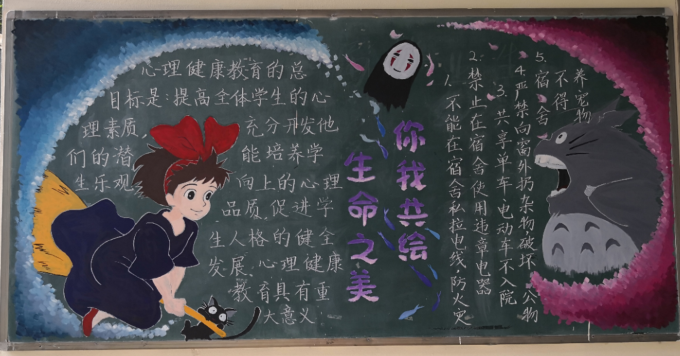 心理健康教育的总
目标是:提高全体学生的心
理素质 充分开发他
们的潜 能培养学
生乐观 向上的心理
品质,促进学
生人格的健全
发展,心理健康
教育具有重
大意义
你我共绘
生命之美
1.不能在宿舍私拉电线,防火灾
2.禁止在宿舍使用违章电器
3.共享单车,电动车不入院
4.严禁向窗外扔杂物破坏公物
5.宿舍
不得
养宠物